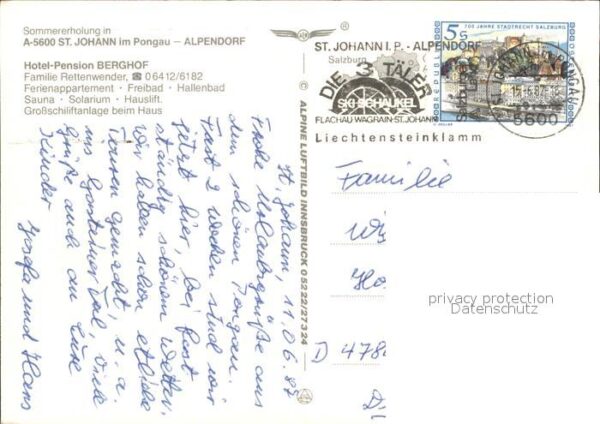 Sommererholung in
A-5600 ST. JOHANN im Pongau – ALPENDORF
Hotel-Pension BERGHOF
Familie Rettenwender, ☎ 06412/6182
Ferienappartement · Freibad · Hallenbad
Sauna · Solarium · Hauslift.
Großschiliftanlage beim Haus
© ALPINE LUFTBILD INNSBRUCK 05222/27324
ST. JOHANN I. P. - ALPENDORF
Salzburg
DIE 3 TÄLER
SKI-SCHAUKEL
FLACHAU-WAGRAIN-ST.JOHANN
Liechtensteinklamm
5 S
700 JAHRE STADTRECHT SALZBURG
REPUBLIK
5600
St. Johann, 11.06.87
Frohe Urlaubsgrüße aus
dem schönen Pongau.
Fast 2 Wochen sind wir
jetzt hier, bei fast
ständig schönem Wetter.
Wir haben schon etliche
Touren gemacht, u. a.
ins Gasteiner Tal, Viele
Grüße auch an Eure
Kinder
Josefa und Hans
Familie
Wi
Ho
D 478
privacy protection
Datenschutz